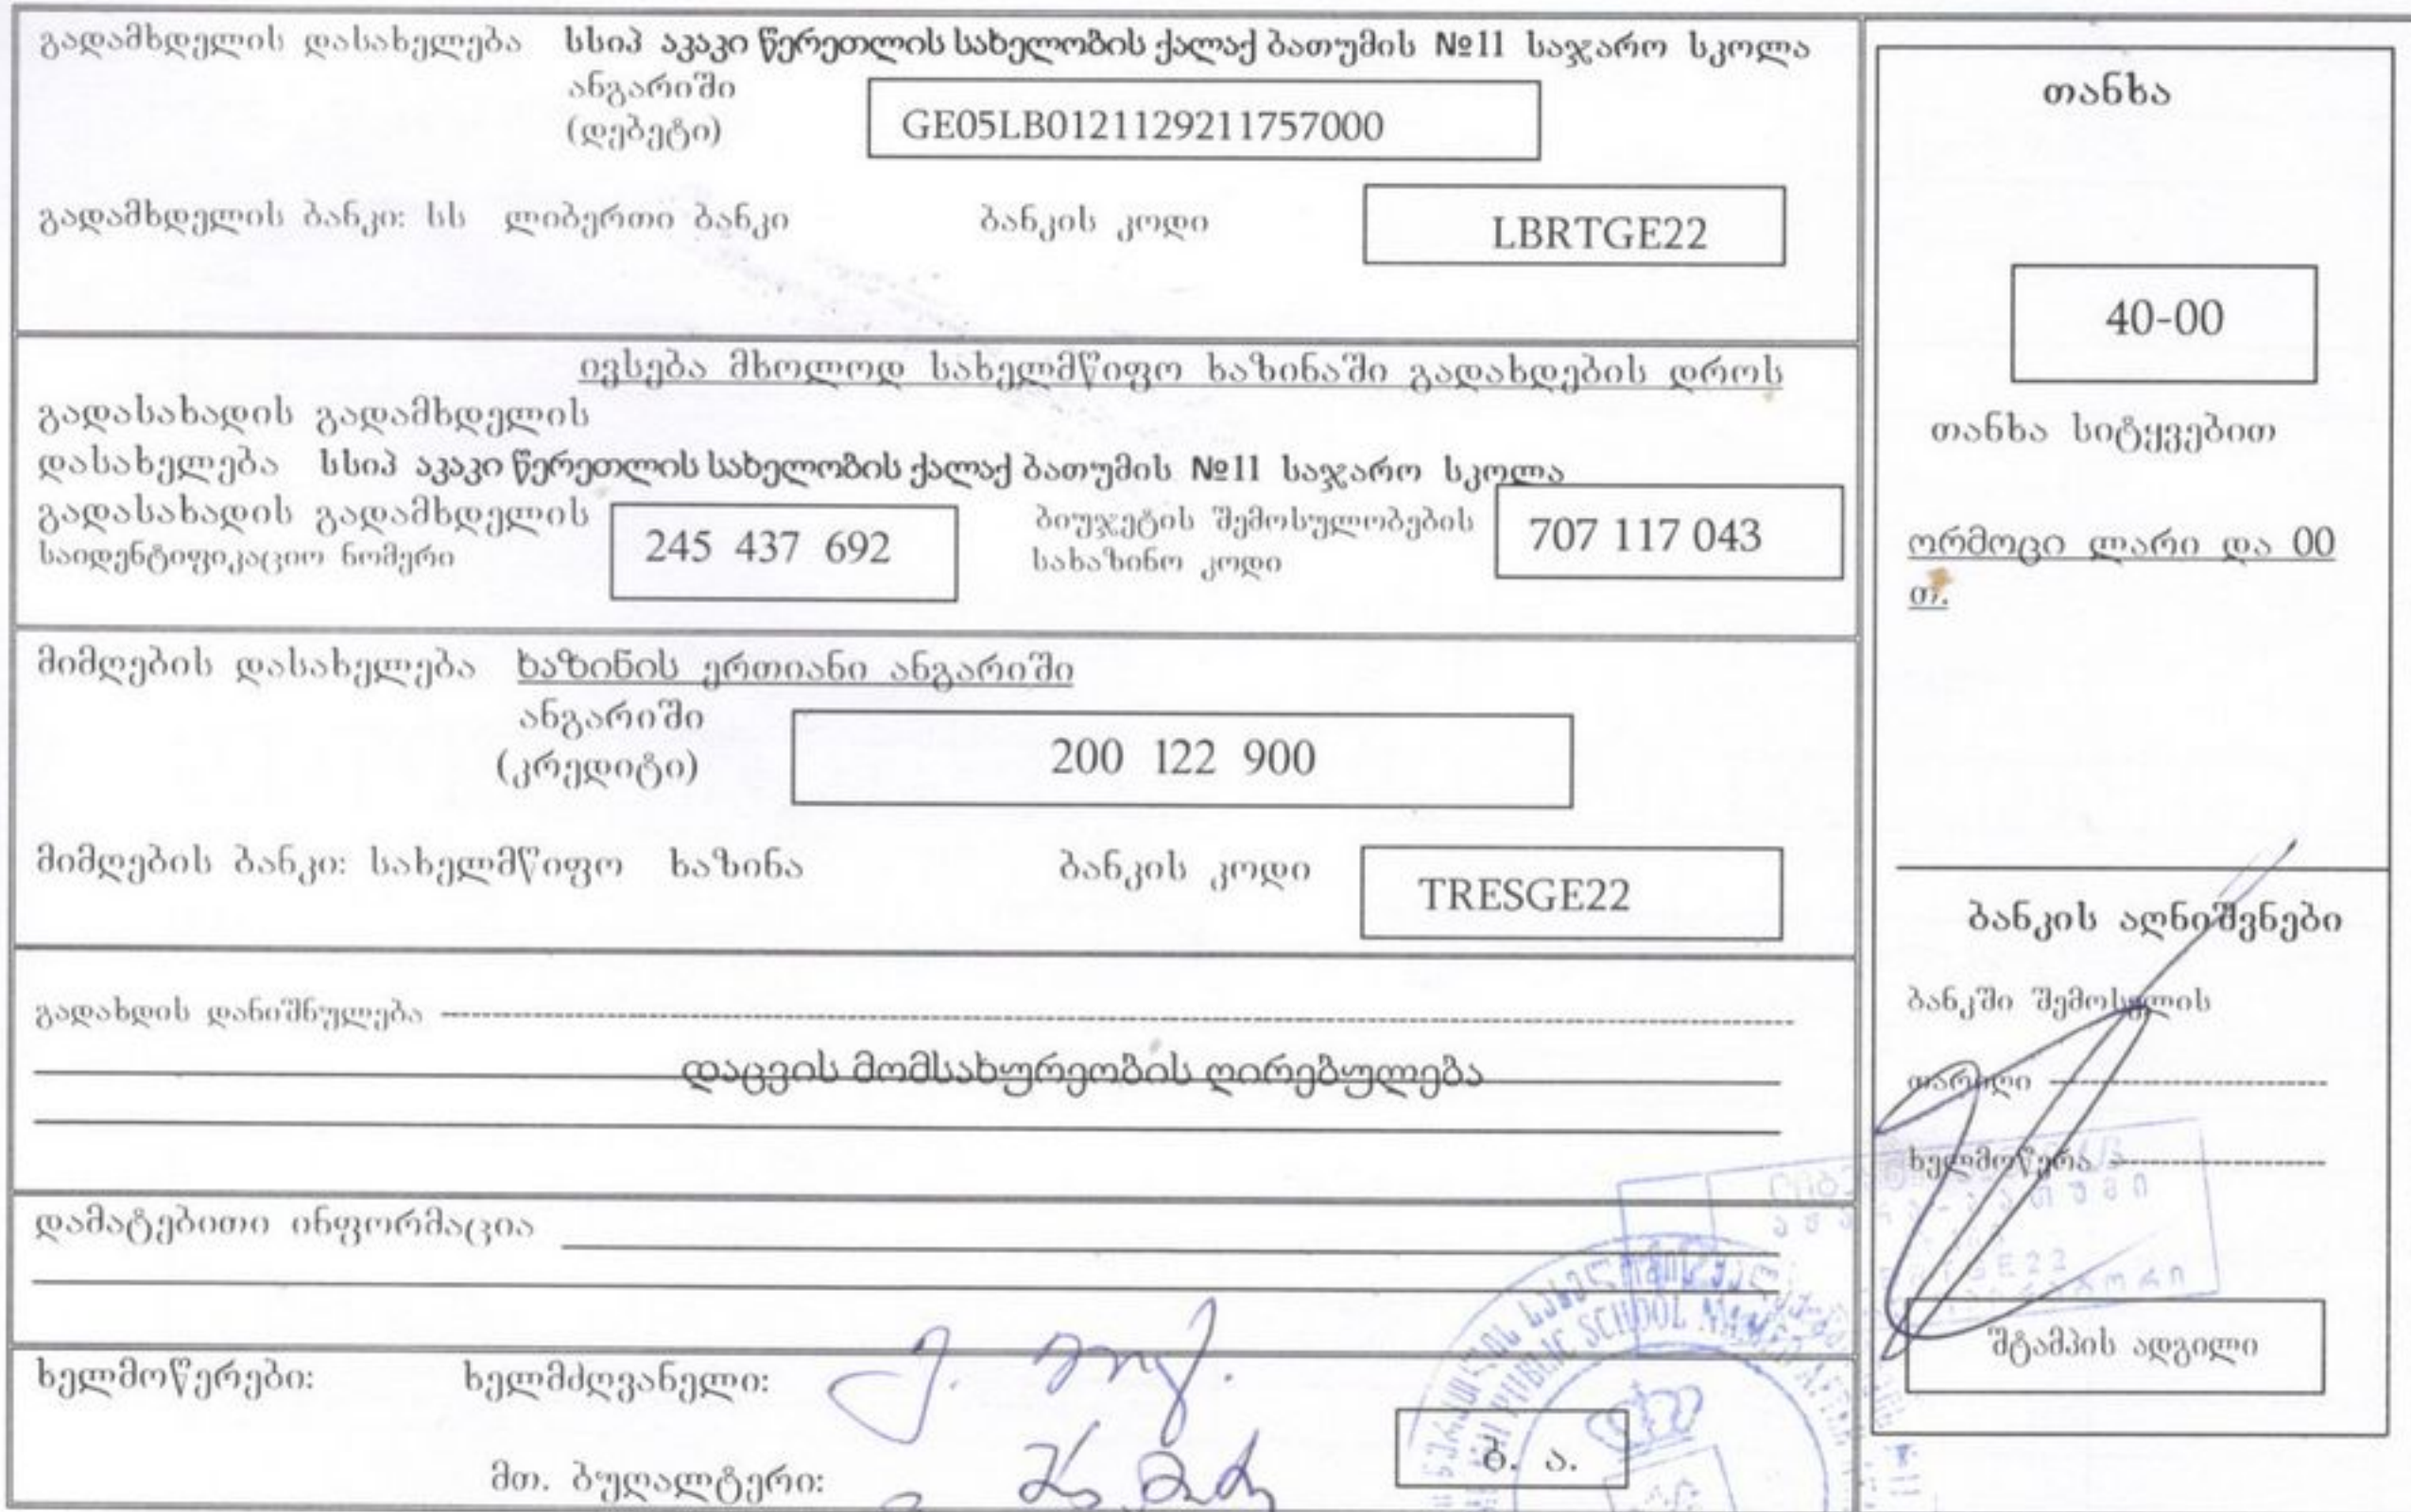 გადამხდელის დასახელება სსიპ აკაკი წერეთლის სახელობის ქალაქ ბათუმის №11 საჯარო სკოლა
ანგარიში
(დებეტი) GE05LB0121129211757000
გადამხდელის ბანკი: სს ლიბერთი ბანკი ბანკის კოდი LBRTGE22
ივსება მხოლოდ სახელმწიფო ხაზინაში გადახდების დროს
გადასახადის გადამხდელის
დასახელება სსიპ აკაკი წერეთლის სახელობის ქალაქ ბათუმის №11 საჯარო სკოლა
გადასახადის გადამხდელის
საიდენტიფიკაციო ნომერი 245 437 692
ბიუჯეტის შემოსულობების
სახაზინო კოდი 707 117 043
მიმღების დასახელება ხაზინის ერთიანი ანგარიში
ანგარიში
(კრედიტი) 200 122 900
მიმღების ბანკი: სახელმწიფო ხაზინა ბანკის კოდი TRESGE22
გადახდის დანიშნულება
დაცვის მომსახურეობის ღირებულება
დამატებითი ინფორმაცია
ხელმოწერები: ხელმძღვანელი:
მთ. ბუღალტერი: ბ. ა.
PUBLIC SCHOOL NAMED AFTER
თანხა
40-00
თანხა სიტყვებით
ორმოცი ლარი და 00
თ.
ბანკის აღნიშვნები
ბანკში შემოსვლის
თარიღი
ხელმოწერა
შტამპის ადგილი